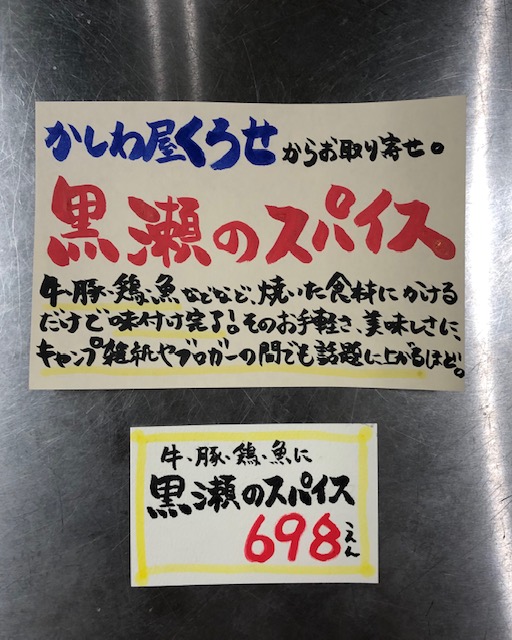 かしわ屋くろせからお取り寄せ。
黒瀬のスパイス
牛・豚・鶏・魚などなど、焼いた食材にかける
だけで味付け完了!そのお手軽さ、美味しさに、
キャンプ雑誌やブロガーの間でも話題に上がるほど。
牛・豚・鶏・魚に
黒瀬のスパイス
698えん